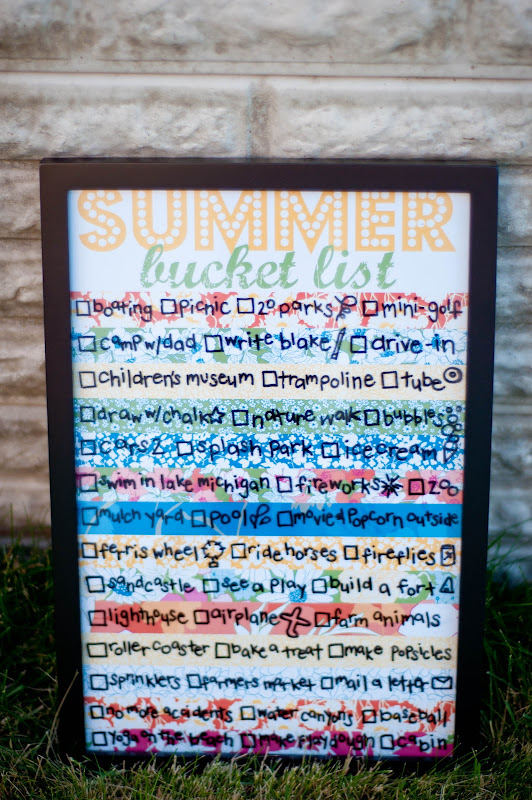 SUMMER
bucket list
boating picnic 20 parks mini-golf
camp w/dad write blake drive-in
children's museum trampoline tube
draw w/chalk nature walk bubbles
cars 2 splash park ice cream
swim in lake michigan fireworks zoo
mulch yard pool movie & popcorn outside
ferris wheel ride horses fireflies
sandcastle see a play build a fort
lighthouse airplane farm animals
roller coaster bake a treat make popsicles
sprinklers farmers market mail a letter
no more acadents water canyons baseball
yoga on the beach make playdough cabin